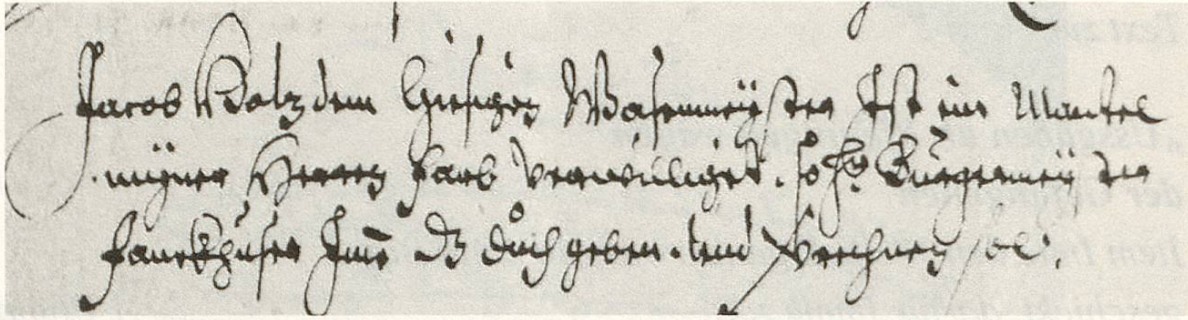 Jacob Kolz dem hiesigen Wasenmeÿster Ist ein Mantel
mÿner Herren farb verwilliget. so Hr Burgermeÿster
fanckhuser Ime dz duch geben. und verrechnen sol.